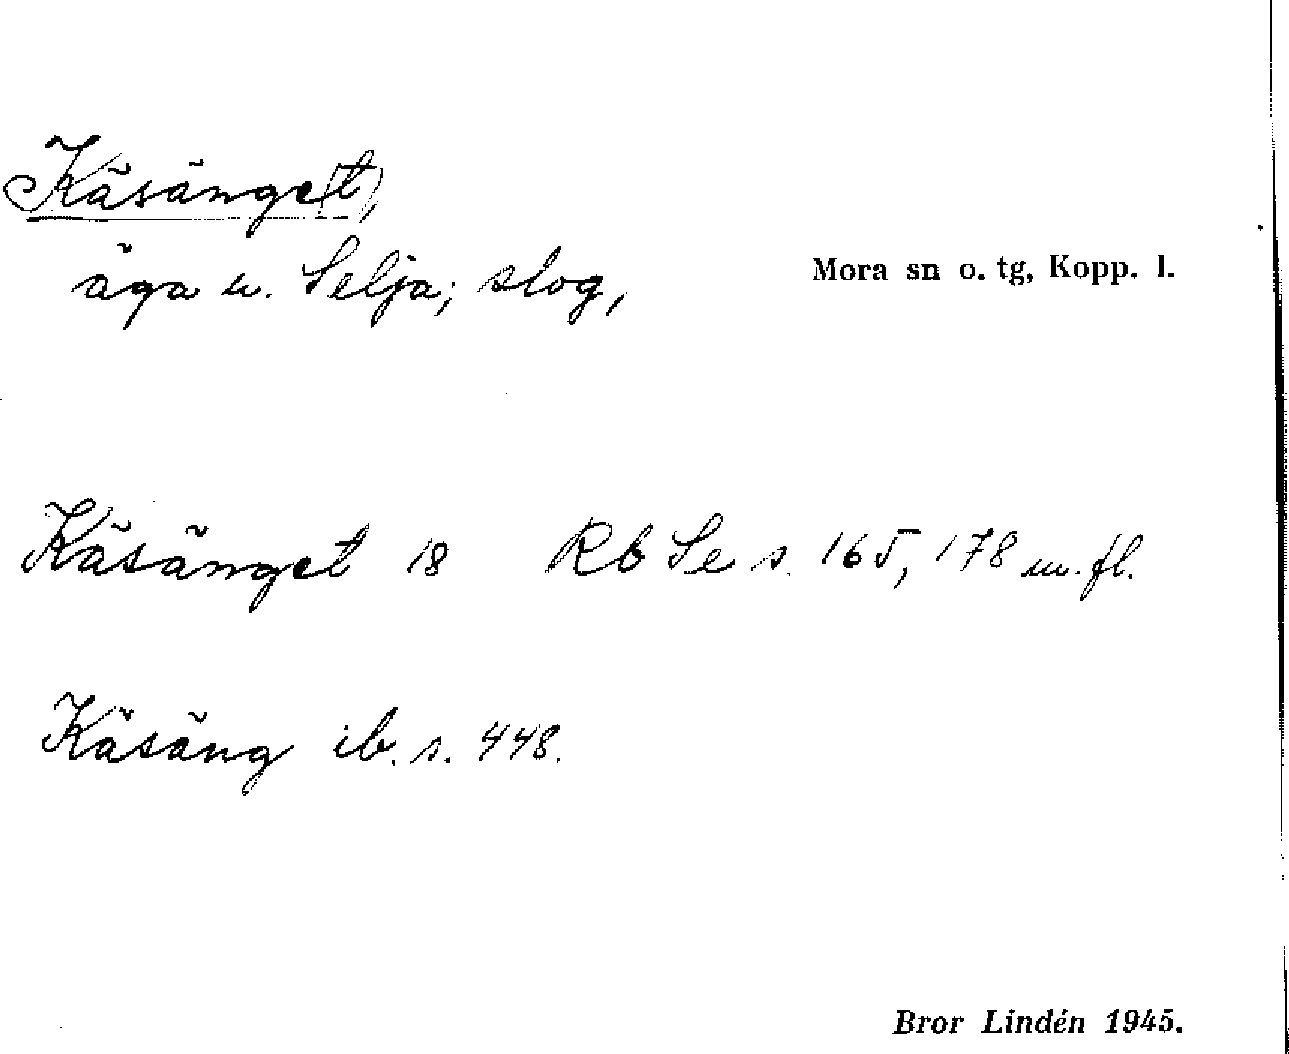 Käsänge(t),
äga u. Selja; slog,
Mora sn o. tg, Kopp. l.
Käsänget 18 Rb Se s. 165, 178 m. fl.
Käsäng ib. s. 448.
Bror Lindén 1945.